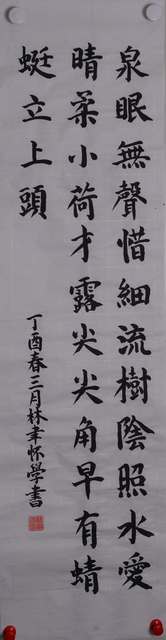 泉眼無聲惜細流樹陰照水愛
晴柔小荷才露尖尖角早有蜻
蜓立上頭
丁酉春三月林聿怀學書